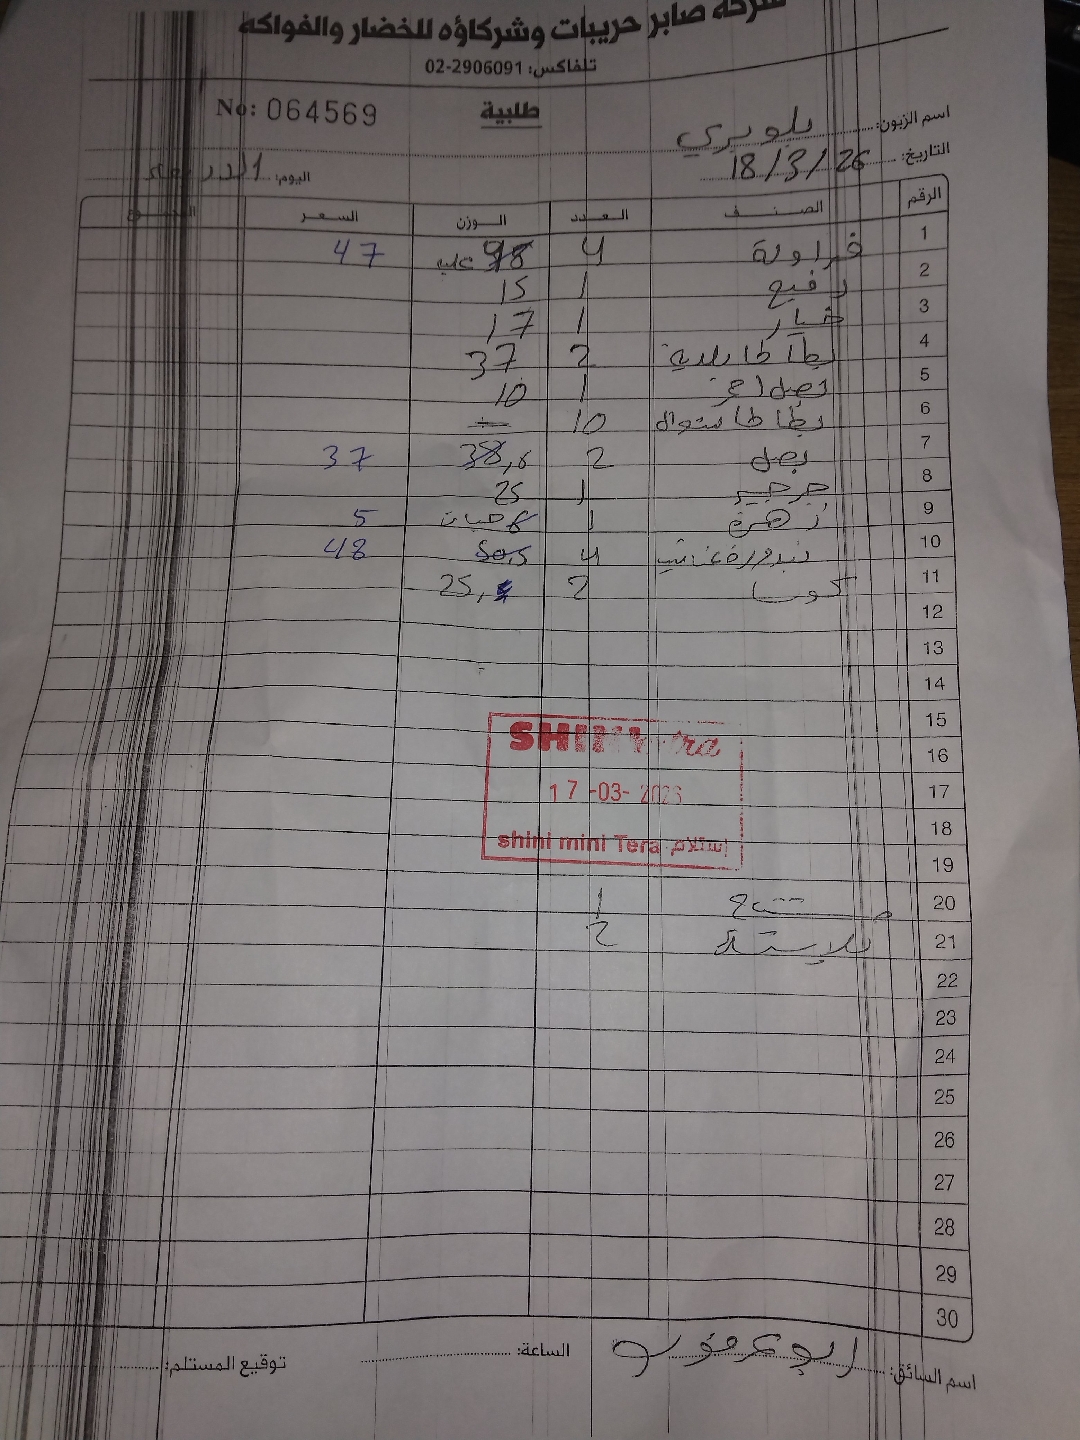 شركة صابر حريبات وشركاؤه للخضار والفواكه
تلفاكس: 02-2906091
No: 064569 طلبية
اسم الزبون:
التاريخ: 18/3/26 اليوم: الاربعاء
الرقم الصنف العدد الوزن السعر
1 فراولة 4 علب 47
2 رفيع 1 15
3 خيار 1 17
4 بطاطا بلدية 2 37
5 بصل احمر 1 10
6 بطاطا 10
7 بصل 2 37
8 جرجير 1 25
9 زهرة 1 حبات 5
10 بندورة 4 50,5 48
11 كوسا 2 25,
12
13
14
15
SHINI Tera
16
17 17-03-2026
18
shini mini Tera إستلام
19
20 1
21 2
22
23
24
25
26
27
28
29
30
اسم السائق: الساعة: توقيع المستلم: